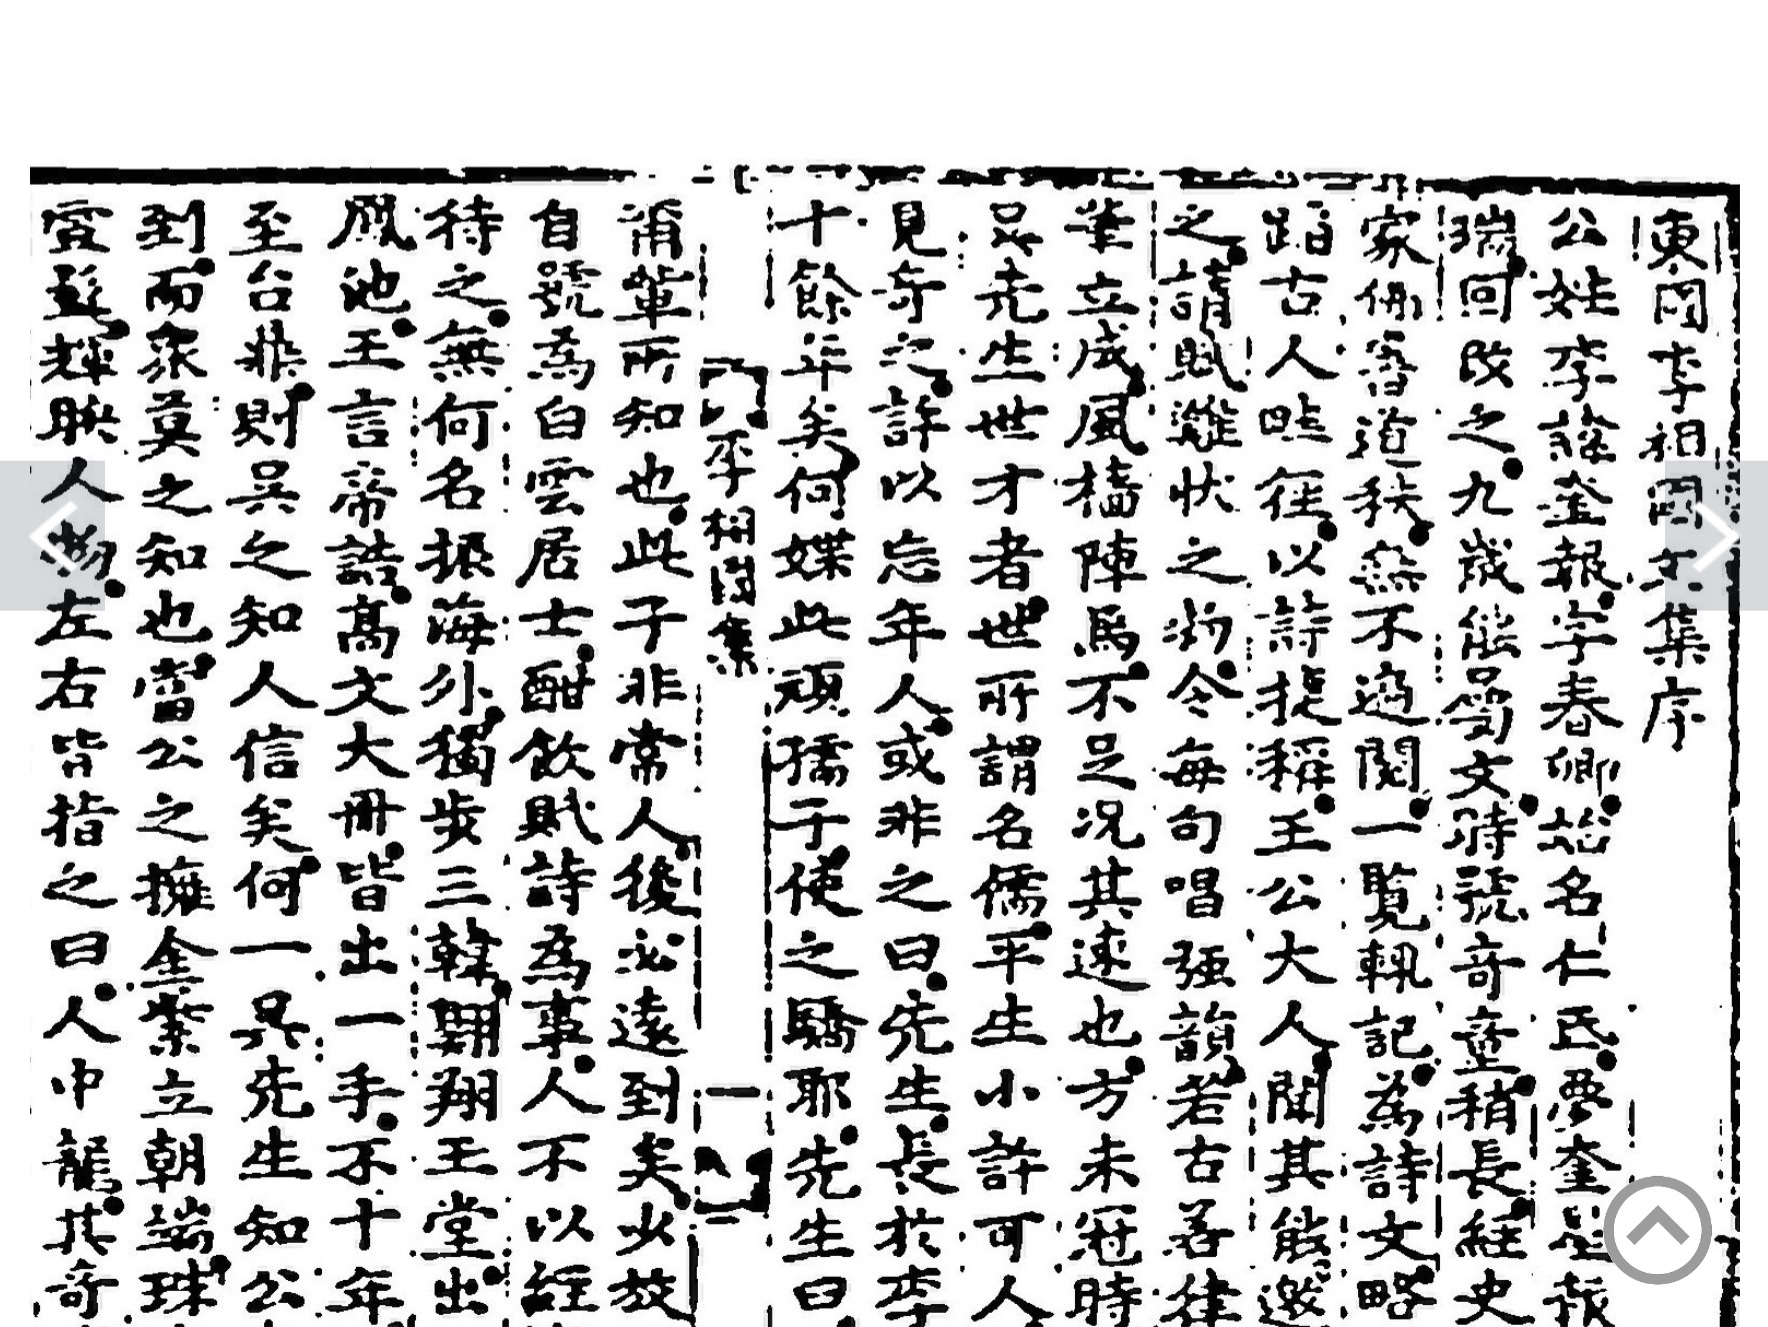 東國李相國文集序
公姓李諱奎報字春卿始名仁氐夢奎星報
瑞因改之九歲能屬文時號奇童稍長經史
家佛書道秩無不遍閱一覽輒記爲詩文略
蹈古人畦徑以詩捷稱王公大人聞其能邀
之請賦難狀之物令每句唱强韻若古若律
筆立成風檣陣馬不足况其速也方未冠時
吳先生世才者世所謂名儒平生小許可人
見奇之許以忘年人或非之曰先生長於李
十餘年矣何媟此頑孺子使之驕耶先生曰
李相國集
一
甫輩所知也此子非常人後必遠到矣少放
自號爲白雲居士酣飮賦詩爲事人不以經
待之無何名振海外獨步三韓翺翔玉堂出
鳳池王言帝誥高文大冊皆出一手不十年
至台鼎則吳之知人信矣何一吳先生知公
到而衆莫之知也當公之擁金紫立朝端珠
宮髮輝映人物左右皆指之曰人中龍其奇